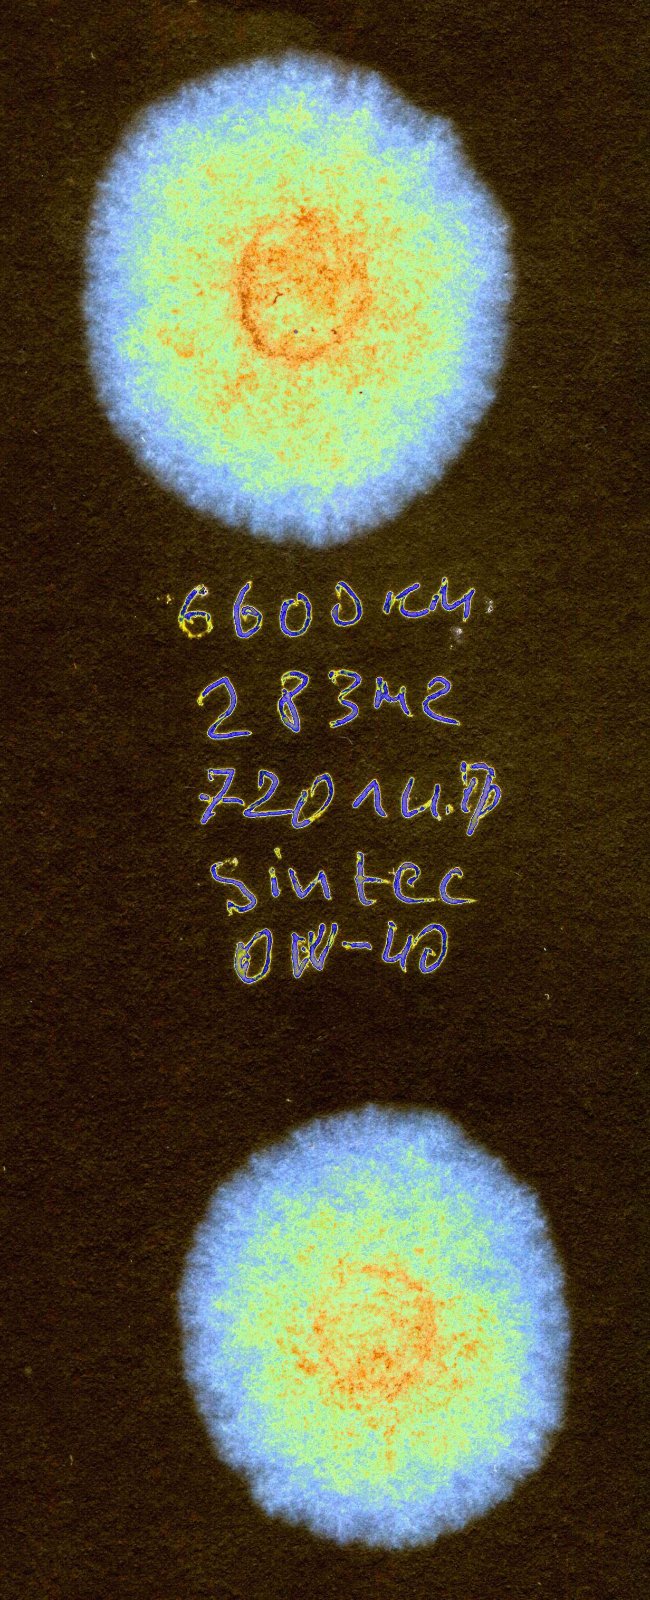 6600км
283мг
720
Sintec
0W-40